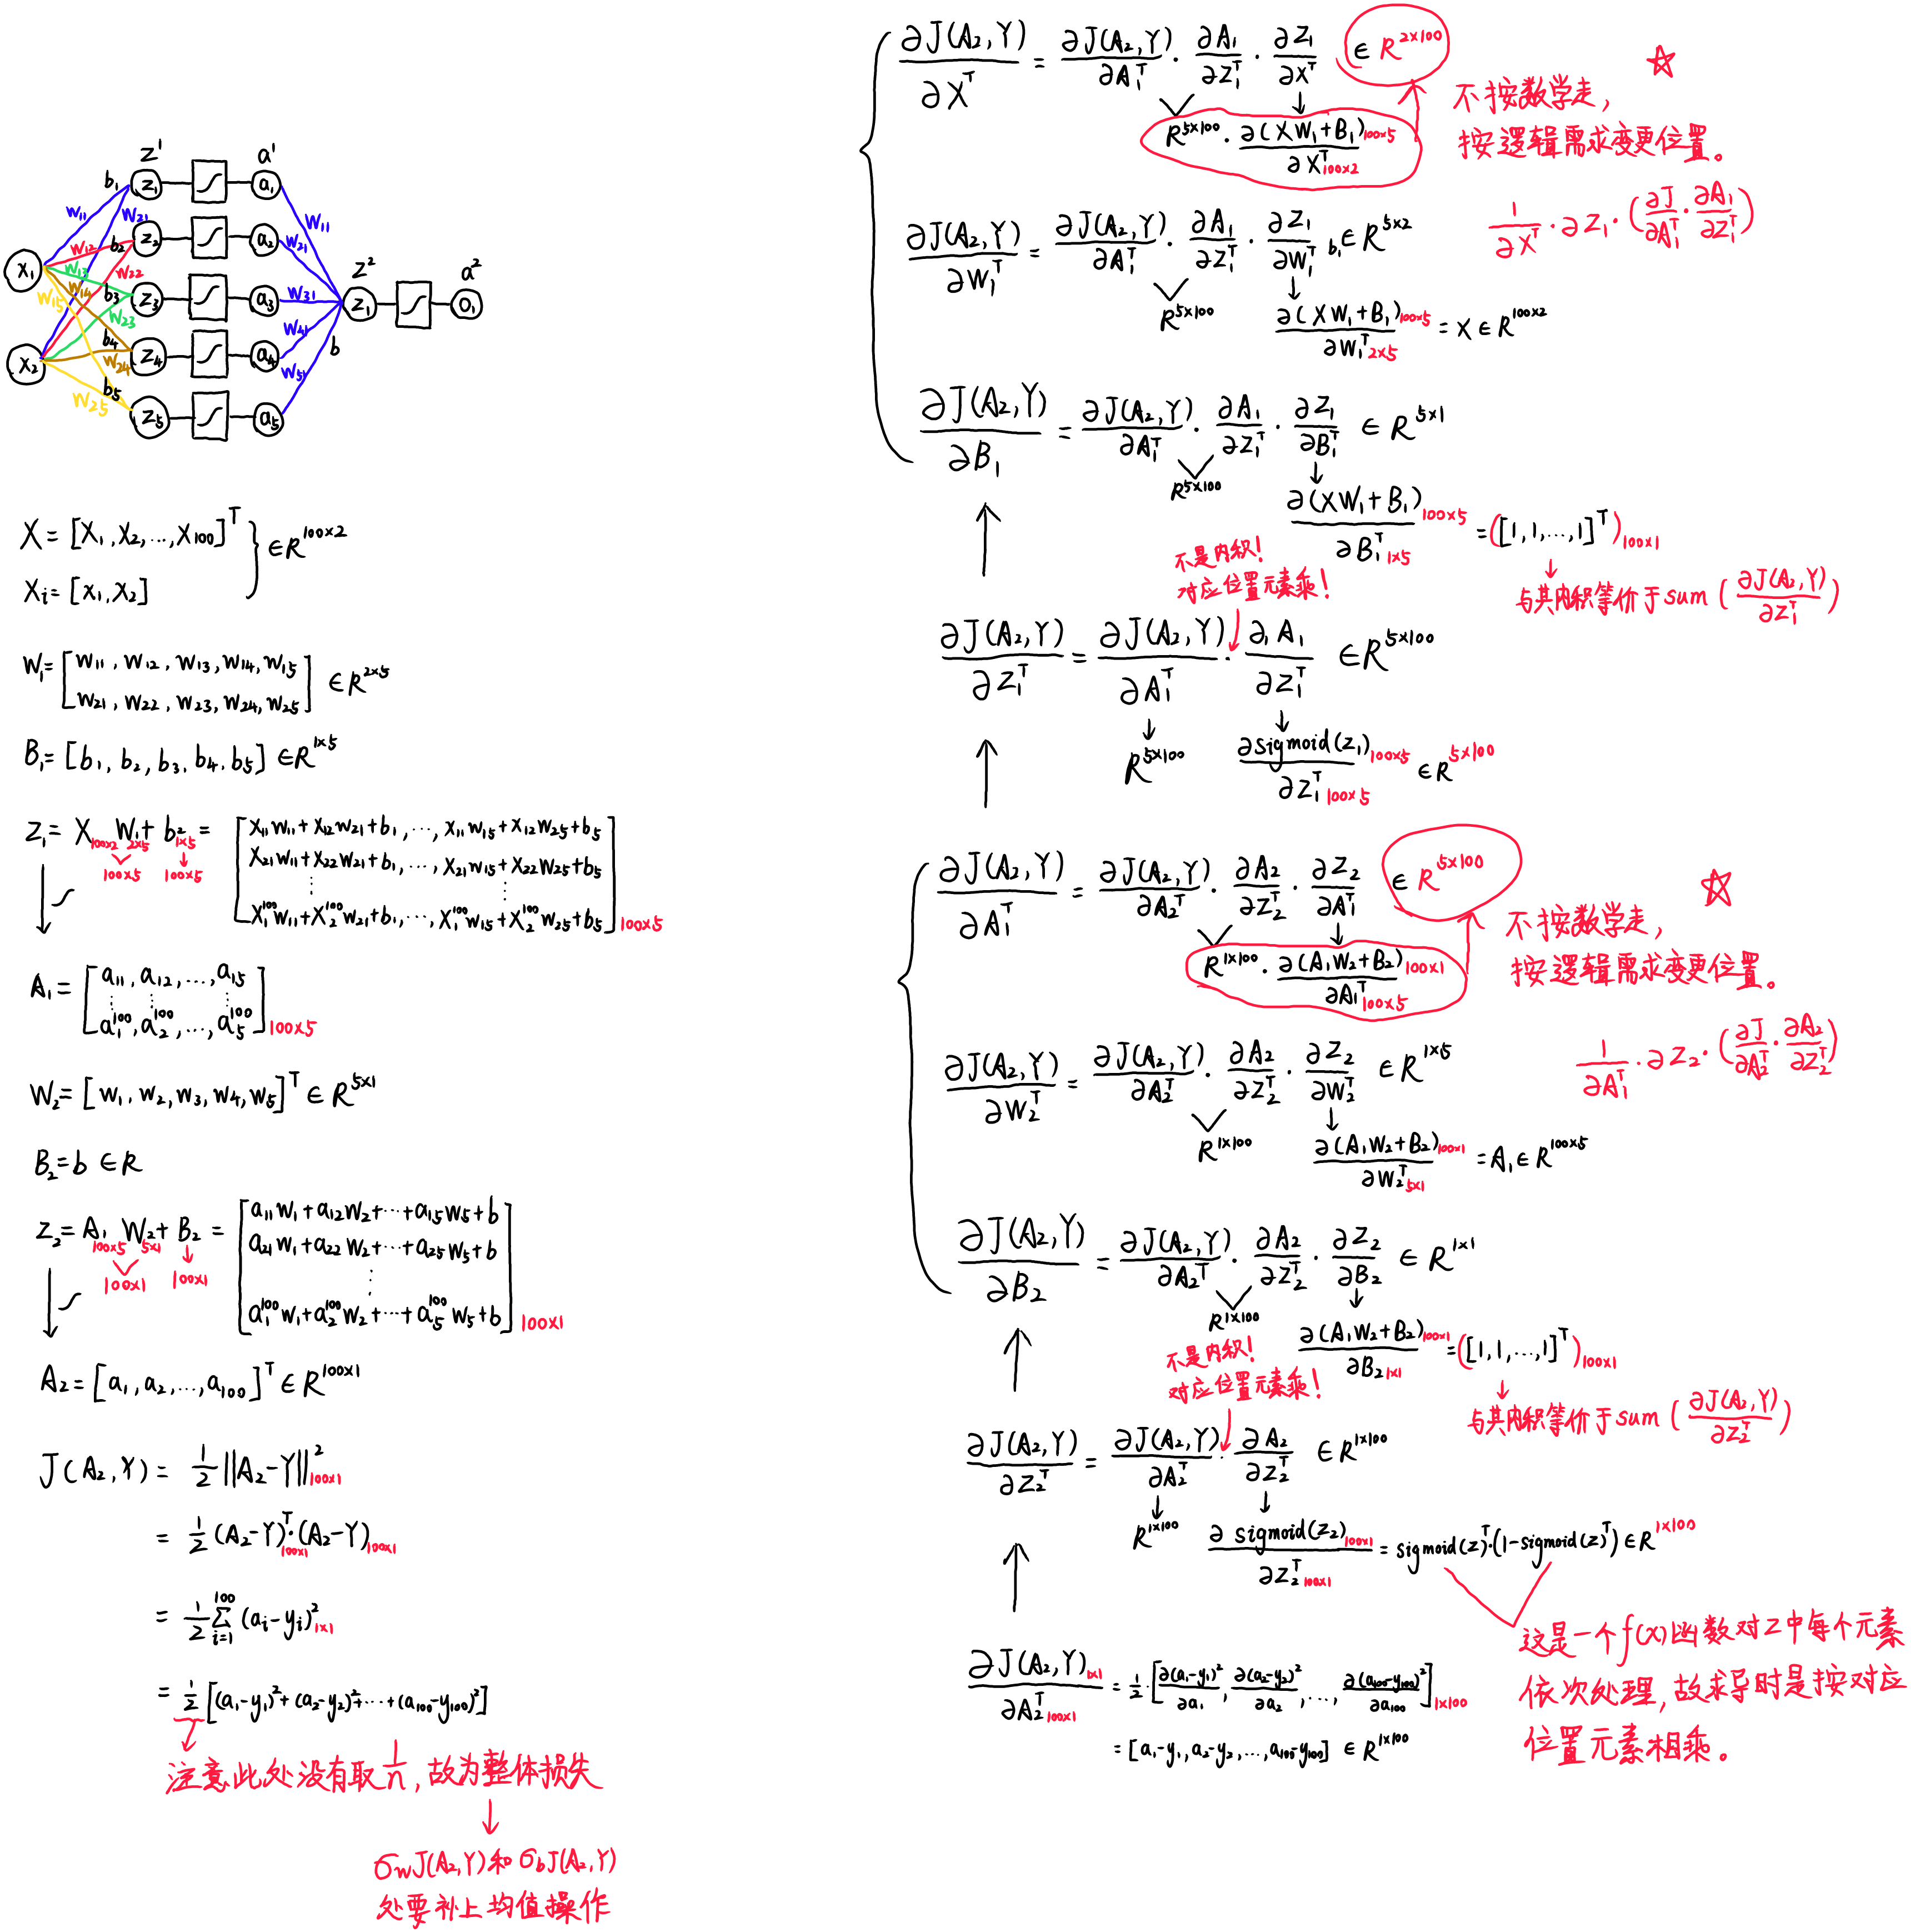 z¹ a¹
b₁ z₁ a₁
w₁₁ w₂₁ w₁₁
w₁₂ b₂ z₂ a₂ w₂₁
x₁ w₁₃ w₂₂ z² a²
w₁₅ w₁₄ b₃ z₃ a₃ w₃₁ z₁ o₁
w₂₃
x₂ b₄ z₄ a₄ w₄₁ b
w₂₄
w₂₅ b₅ z₅ a₅ w₅₁
X = [X₁, X₂, ..., X₁₀₀]ᵀ
Xᵢ = [x₁, x₂] } ∈ R^{100×2}
W₁ = [w₁₁, w₁₂, w₁₃, w₁₄, w₁₅
w₂₁, w₂₂, w₂₃, w₂₄, w₂₅] ∈ R^{2×5}
B₁ = [b₁, b₂, b₃, b₄, b₅] ∈ R^{1×5}
z₁ = X W₁ + b₂ = [x₁₁w₁₁ + x₁₂w₂₁ + b₁, ..., x₁₁w₁₅ + x₁₂w₂₅ + b₅
100×2 2×5 1×5
x₂₁w₁₁ + x₂₂w₂₁ + b₁, ..., x₂₁w₁₅ + x₂₂w₂₅ + b₅
100×5 100×5
⋮ ⋮
x₁¹⁰⁰w₁₁ + x₂¹⁰⁰w₂₁ + b₁, ..., x₁¹⁰⁰w₁₅ + x₂¹⁰⁰w₂₅ + b₅] 100×5
A₁ = [a₁₁, a₁₂, ..., a₁₅
⋮ ⋮ ⋮
a₁¹⁰⁰, a₂¹⁰⁰, ..., a₅¹⁰⁰] 100×5
W₂ = [w₁, w₂, w₃, w₄, w₅]ᵀ ∈ R^{5×1}
B₂ = b ∈ R
z₂ = A₁ W₂ + B₂ = [a₁₁w₁ + a₁₂w₂ + ⋯ + a₁₅w₅ + b
100×5 5×1
a₂₁w₁ + a₂₂w₂ + ⋯ + a₂₅w₅ + b
100×1 100×1
⋮
a₁¹⁰⁰w₁ + a₂¹⁰⁰w₂ + ⋯ + a₅¹⁰⁰w₅ + b] 100×1
A₂ = [a₁, a₂, ..., a₁₀₀]ᵀ ∈ R^{100×1}
J(A₂, Y) = 1/2 ||A₂ - Y||² 100×1
= 1/2 (A₂ - Y)ᵀ 100×1 · (A₂ - Y) 100×1
= 1/2 Σ_{i=1}^{100} (aᵢ - yᵢ)² 1×1
= 1/2 [(a₁ - y₁)² + (a₂ - y₂)² + ⋯ + (a₁₀₀ - y₁₀₀)²]
注意此处没有取 1/n, 故为整体损失
σ_w J(A₂, Y) 和 σ_b J(A₂, Y)
处要补上均值操作
∂J(A₂, Y)/∂Xᵀ = ∂J(A₂, Y)/∂A₁ᵀ · ∂A₁/∂Z₁ᵀ · ∂Z₁/∂Xᵀ ∈ R^{2×100}
R^{5×100} · ∂(XW₁+B₁) 100×5 / ∂Xᵀ 100×2
☆
不按数学走,
按逻辑需求变更位置。
1/∂Xᵀ · ∂Z₁ · (∂J/∂A₁ᵀ · ∂A₁/∂Z₁ᵀ)
∂J(A₂, Y)/∂W₁ᵀ = ∂J(A₂, Y)/∂A₁ᵀ · ∂A₁/∂Z₁ᵀ · ∂Z₁/∂W₁ᵀ b₁ ∈ R^{5×2}
R^{5×100} ∂(XW₁+B₁) 100×5 / ∂W₁ᵀ 2×5 = X ∈ R^{100×2}
∂J(A₂, Y)/∂B₁ = ∂J(A₂, Y)/∂A₁ᵀ · ∂A₁/∂Z₁ᵀ · ∂Z₁/∂B₁ᵀ ∈ R^{5×1}
R^{5×100} ∂(XW₁+B₁) 100×5 / ∂B₁ᵀ 1×5 = ([1, 1, ..., 1]ᵀ) 100×1
与其内积等价于 sum (∂J(A₂, Y)/∂Z₁ᵀ)
不是内积!
对应位置元素乘!
∂J(A₂, Y)/∂Z₁ᵀ = ∂J(A₂, Y)/∂A₁ᵀ · ∂A₁/∂Z₁ᵀ ∈ R^{5×100}
R^{5×100} ∂sigmoid(z₁) 100×5 / ∂Z₁ᵀ 100×5 ∈ R^{5×100}
∂J(A₂, Y)/∂A₁ᵀ = ∂J(A₂, Y)/∂A₂ᵀ · ∂A₂/∂Z₂ᵀ · ∂Z₂/∂A₁ᵀ ∈ R^{5×100}
R^{1×100} · ∂(A₁W₂+B₂) 100×1 / ∂A₁ᵀ 100×5
☆
不按数学走,
按逻辑需求变更位置。
1/∂A₁ᵀ · ∂Z₂ · (∂J/∂A₂ᵀ · ∂A₂/∂Z₂ᵀ)
∂J(A₂, Y)/∂W₂ᵀ = ∂J(A₂, Y)/∂A₂ᵀ · ∂A₂/∂Z₂ᵀ · ∂Z₂/∂W₂ᵀ ∈ R^{1×5}
R^{1×100} ∂(A₁W₂+B₂) 100×1 / ∂W₂ᵀ 5×1 = A₁ ∈ R^{100×5}
∂J(A₂, Y)/∂B₂ = ∂J(A₂, Y)/∂A₂ᵀ · ∂A₂/∂Z₂ᵀ · ∂Z₂/∂B₂ ∈ R^{1×1}
R^{1×100} ∂(A₁W₂+B₂) 100×1 / ∂B₂ 1×1 = ([1, 1, ..., 1]ᵀ) 100×1
与其内积等价于 sum (∂J(A₂, Y)/∂Z₂ᵀ)
不是内积!
对应位置元素乘!
∂J(A₂, Y)/∂Z₂ᵀ = ∂J(A₂, Y)/∂A₂ᵀ · ∂A₂/∂Z₂ᵀ ∈ R^{1×100}
R^{1×100} ∂sigmoid(z₂) 100×1 / ∂Z₂ᵀ 100×1 = sigmoid(z)ᵀ·(1-sigmoid(z)ᵀ) ∈ R^{1×100}
这是一个f(x)函数对z中每个元素
依次处理, 故求导时是按对应
位置元素相乘。
∂J(A₂, Y) 1×1 / ∂A₂ᵀ 100×1 = 1/2 · [∂(a₁-y₁)²/∂a₁, ∂(a₂-y₂)²/∂a₂, ..., ∂(a₁₀₀-y₁₀₀)²/∂a₁₀₀] 1×100
= [a₁-y₁, a₂-y₂, ..., a₁₀₀-y₁₀₀] ∈ R^{1×100}